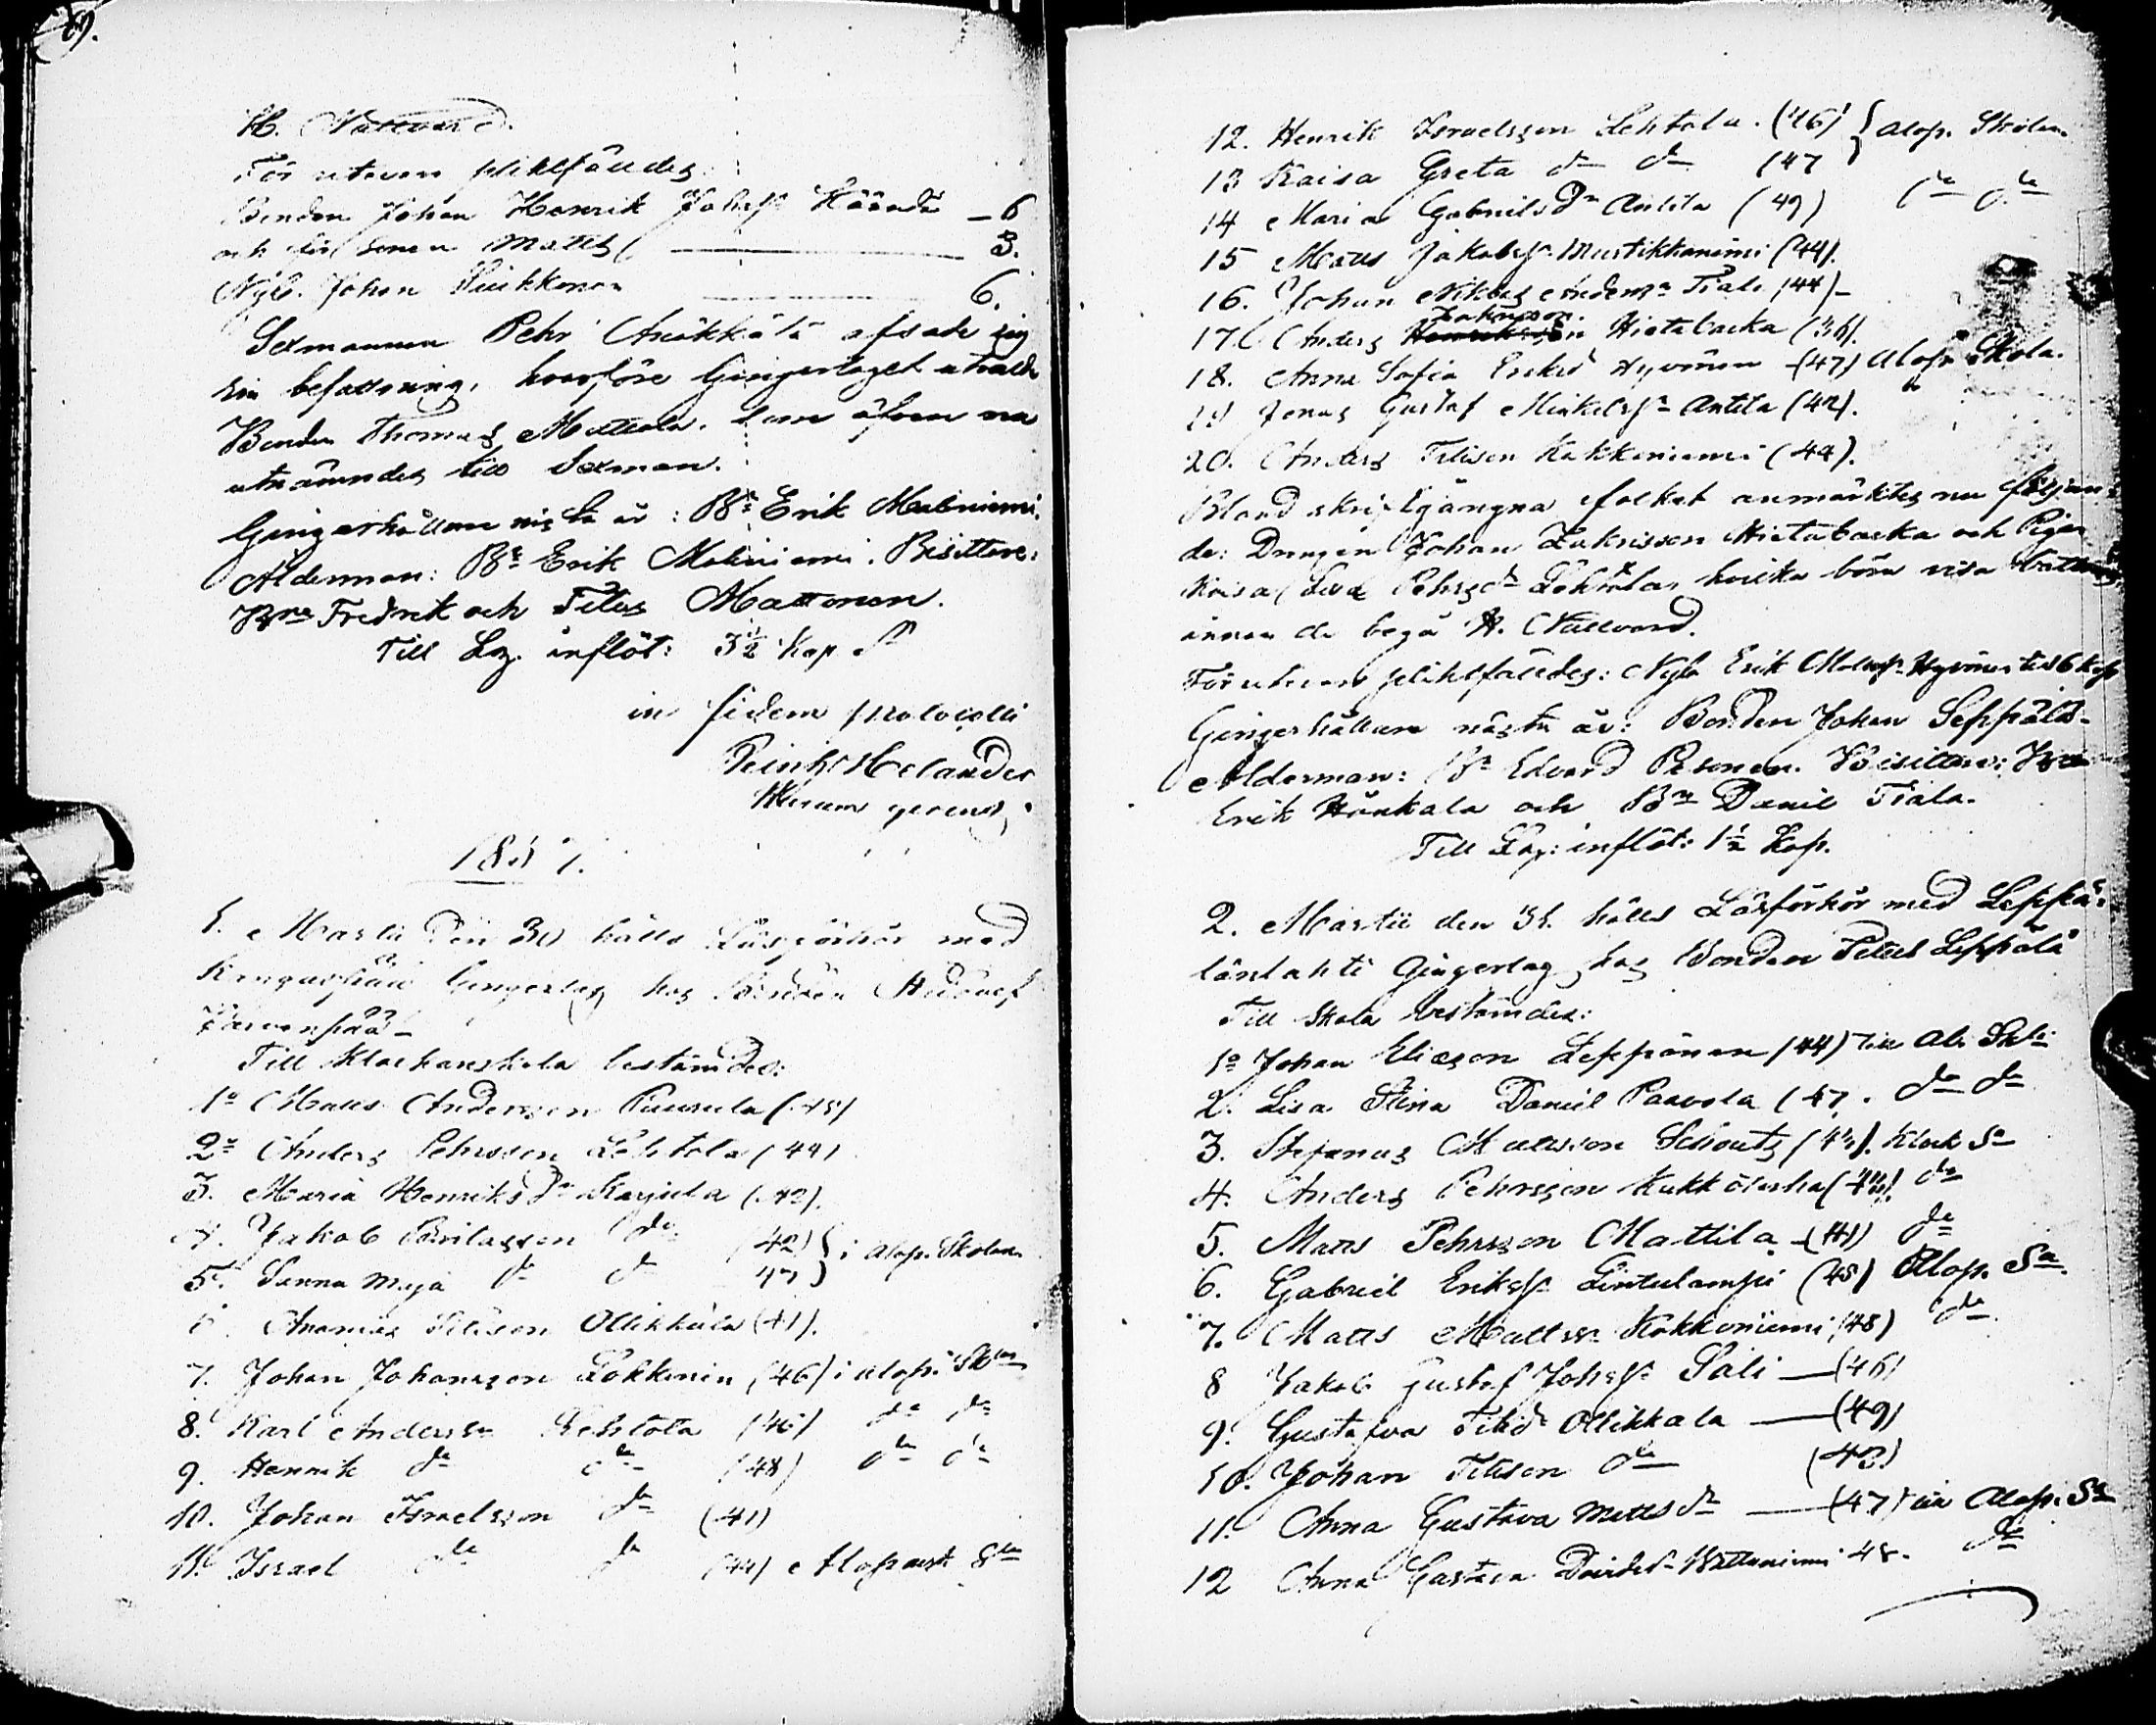 H. Nattvard.
För utevaro plikfäldes:
Bonden Johan Henrik Johsn Häändä — 6
och för sonen Matts — 3.
Nyb. Johan Puikkonen — 6.
Sexmannen Pehr Anökkölä afsade sig
sin befattning, hvarföre Gingerlaget utvalde
Bonden Thomas Mattola, som äfven nu
utnämndes till Sexman.
Gingerhållare nästa år: Bn Erik Maliniemi.
Alderman: Bn Erik Maliniemi. Bisittare:
Bne Fredrik och Titus Mattonen.
Till Lz. inflöt: 3½ Kop. S
in fidem protocolli
Reinh Helander
gerens.
1857.
1. Martii den 30 hölls Läsförhör med
Gingerlag hos Bonden
Till Klockarskola bestämdes:
1o Matts Andersson Puurula (45)
2o Anders Pehrsson Lehtola (44)
3. Maria Henriksdr Karjula (42).
4. Jakob do (42) } i Alop. Skolan
5. Sanna Maja do do 47 }
6. Ananias Titison Ollikkala (41).
7. Johan Johansson Lokkinin (46) i Alop. Skln
8. Karl Anderssn Lehtola (46) do do
9. Henrik do do (48) do do
10. Johan Israelsson do (41)
11. Israel do do (44) Alopaisk Sln
12. Henrik Israelsson Lehtola. (46) } Alop. Skolan
13 Kaisa Greta do do (47
14 Maria Gabrielsdr Antila (49) do do
15 Matts Jakobsn Mustikkaniemi (44).
16. Johan Niklas Andersn Tiala (44) —
Zakrisson.
17. Anders Henriksson Hietabacka (36).
18. Anna Sofia Eriksd Hyvönen — (47) Alop. Skola.
19 Jonas Gustaf Mickelsn Antila (42).
20. Anders Titison Kokkoniemi (44).
Bland skriftgångna folket anmärktes nu följan-
de: Drängen Johan Zakrisson Hietabacka och Pigan
Kaisa Lisa Pehrsdr Lehtola, hvilka böra visa bättring
innan de begå H. Nattvard.
För utevaro plikfäldes: Nyb Erik Matssn Hyvönen till 6 kop
Gingerhållare nästa år: Bonden Johan Seppälä —
Alderman: Bn Edvard Pesonen. Bisittare: Bn
Erik Hönkala och Bn Daniel Tiala.
Till Lz: inflöt: 1½ Kop.
2. Martii den 31. hölls Läsförhör med Leppä-
länlahti Gingerlag hos Bonden Petter Leppälä
Till Skola bestämdes:
1o Johan Eliæson Leppänen (44) till Alo. Skla
2. Lisa Stina Daniel Paavola (47. do do
3. Stefanus Mattsson Schoutz (43). Klock Sa
4. Anders Pehrsson Kukkölerha (40). do
5. Matts Pehrsson Mattila — (41) do
6. Gabriel Eriksn Lintulampi (45) Alop. Sa.
7. Matts Mattssn Kokkoniemi (48) do
8 Jakob Gustaf Johsn Sali — (46)
9. Gustafva Titid Ollikkala — (49)
10. Johan Titison do (42)
11. Anna Gustava Mattsdr — (47) till Alop. Sa
12 Anna Gustava Davidsd. 48. do